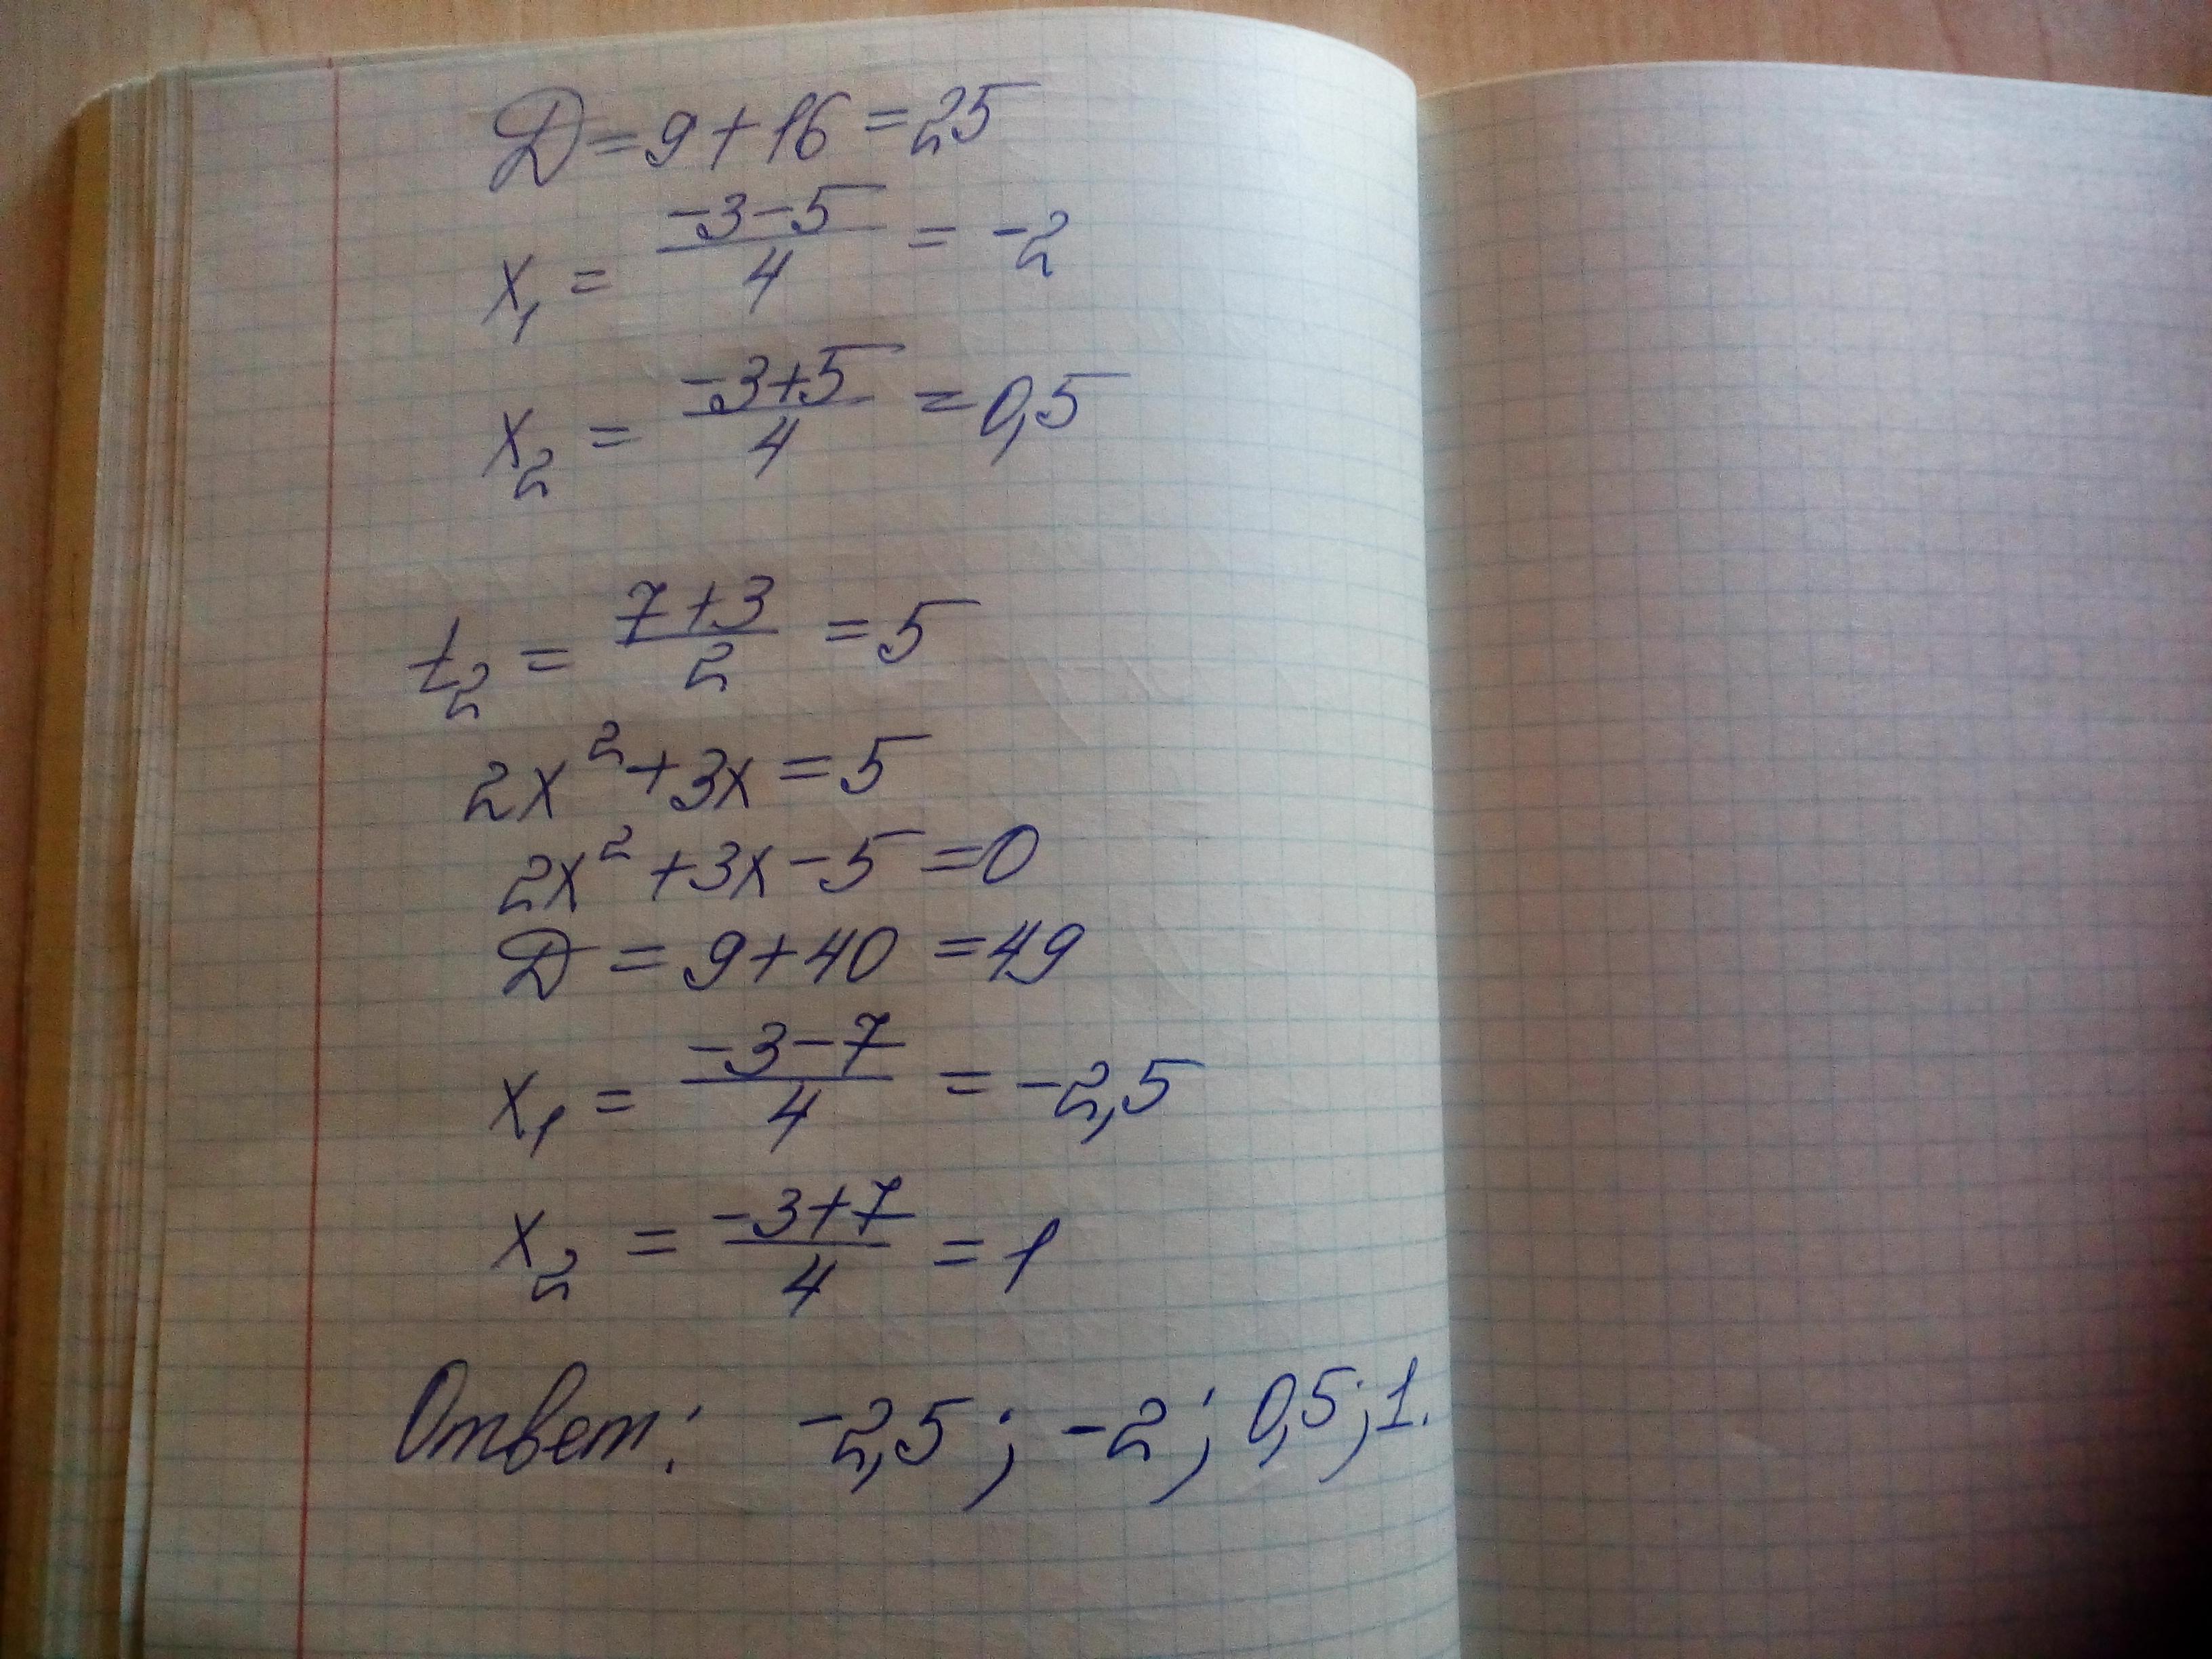 D = 9 + 16 = 25
x₁ = (-3-5)/4 = -2
x₂ = (-3+5)/4 = 0,5
t₂ = (7+3)/2 = 5
2x² + 3x = 5
2x² + 3x - 5 = 0
D = 9 + 40 = 49
x₁ = (-3-7)/4 = -2,5
x₂ = (-3+7)/4 = 1
Ответ: -2,5; -2; 0,5; 1.